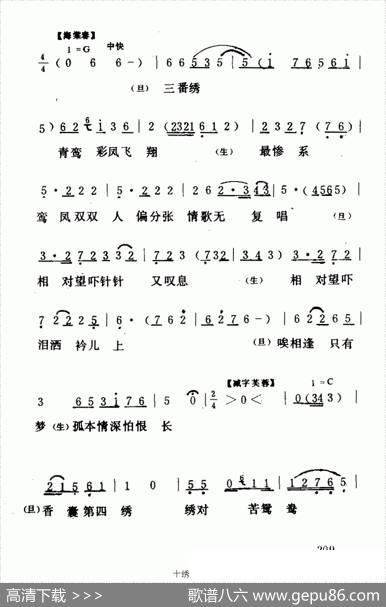 【海棠春】
1=G 中快
4/4 (0 6 6 -) | 6 6 5 3 5 | 5 (i 7 6 5 6 i |
(旦) 三番绣
5) 6 2 i 3 6 | 2 (2321 6 1 2) | 2 3 2 7 (7 6) |
青鸾 彩凤飞 翔 (生) 最惨 系
5·2 2 2 | 5·2 2 2 | 2 6 2·3 4 3 | 5·(4565)
鸾 凤双双 人 偏分张 情歌无 复唱 (旦)
3·2 7 2 3 3 2 | 7 2 3 (7 3 2 | 3 4 3) 3·2 7 2
相 对望吓针针 又叹息 (生) 相 对望吓
7 2 2 2 5 | 6 - (7 6 2 | 6 2 7 6 -) | 6 2 2 6 5
泪洒 衿儿 上 (旦) 唉相逢 只有
【减字芙蓉】 1=C
3 6 5 3 7 6 | 5 0 | 2/4 >0< | 0 (3 4 3)
梦 (生) 孤本情深怕恨 长
2 1 5 6 1 | 1 0 | 5 5 0 1 1 | 1 2 7 6 5 |
(旦) 香 囊第四 绣 绣对 苦鸳 鸯
十绣
高清下载 >>>
歌谱八六 www.gepu86.com